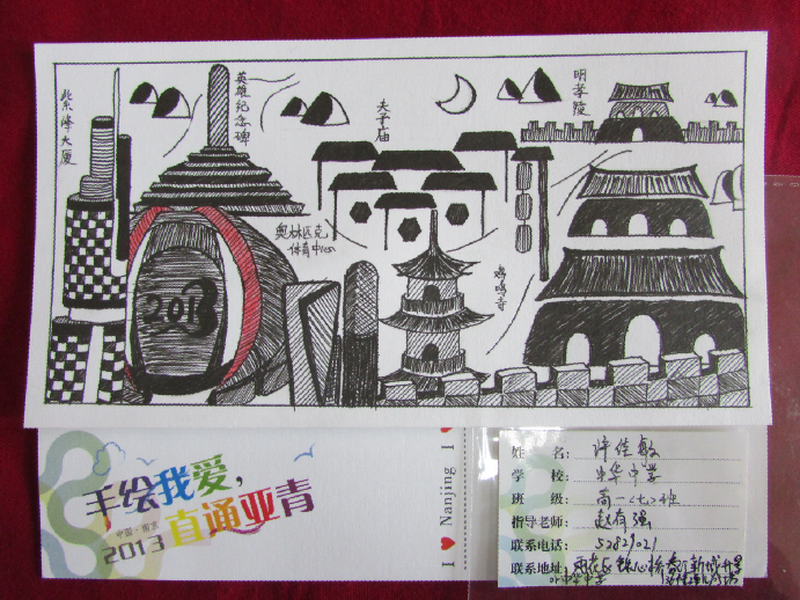 紫峰大厦
英雄纪念碑
夫子庙
明孝陵
奥林匹克
体育中心
鸡鸣寺
2013
手绘我爱,
直通亚青
中国·南京
2013
I ♥ Nanjing I
姓 名: 许佳敏
学 校: 中华中学
班 级: 高一〈七〉班
指导老师: 赵有强
联系电话: 52829021
联系地址: 雨花区铁心桥春江新城